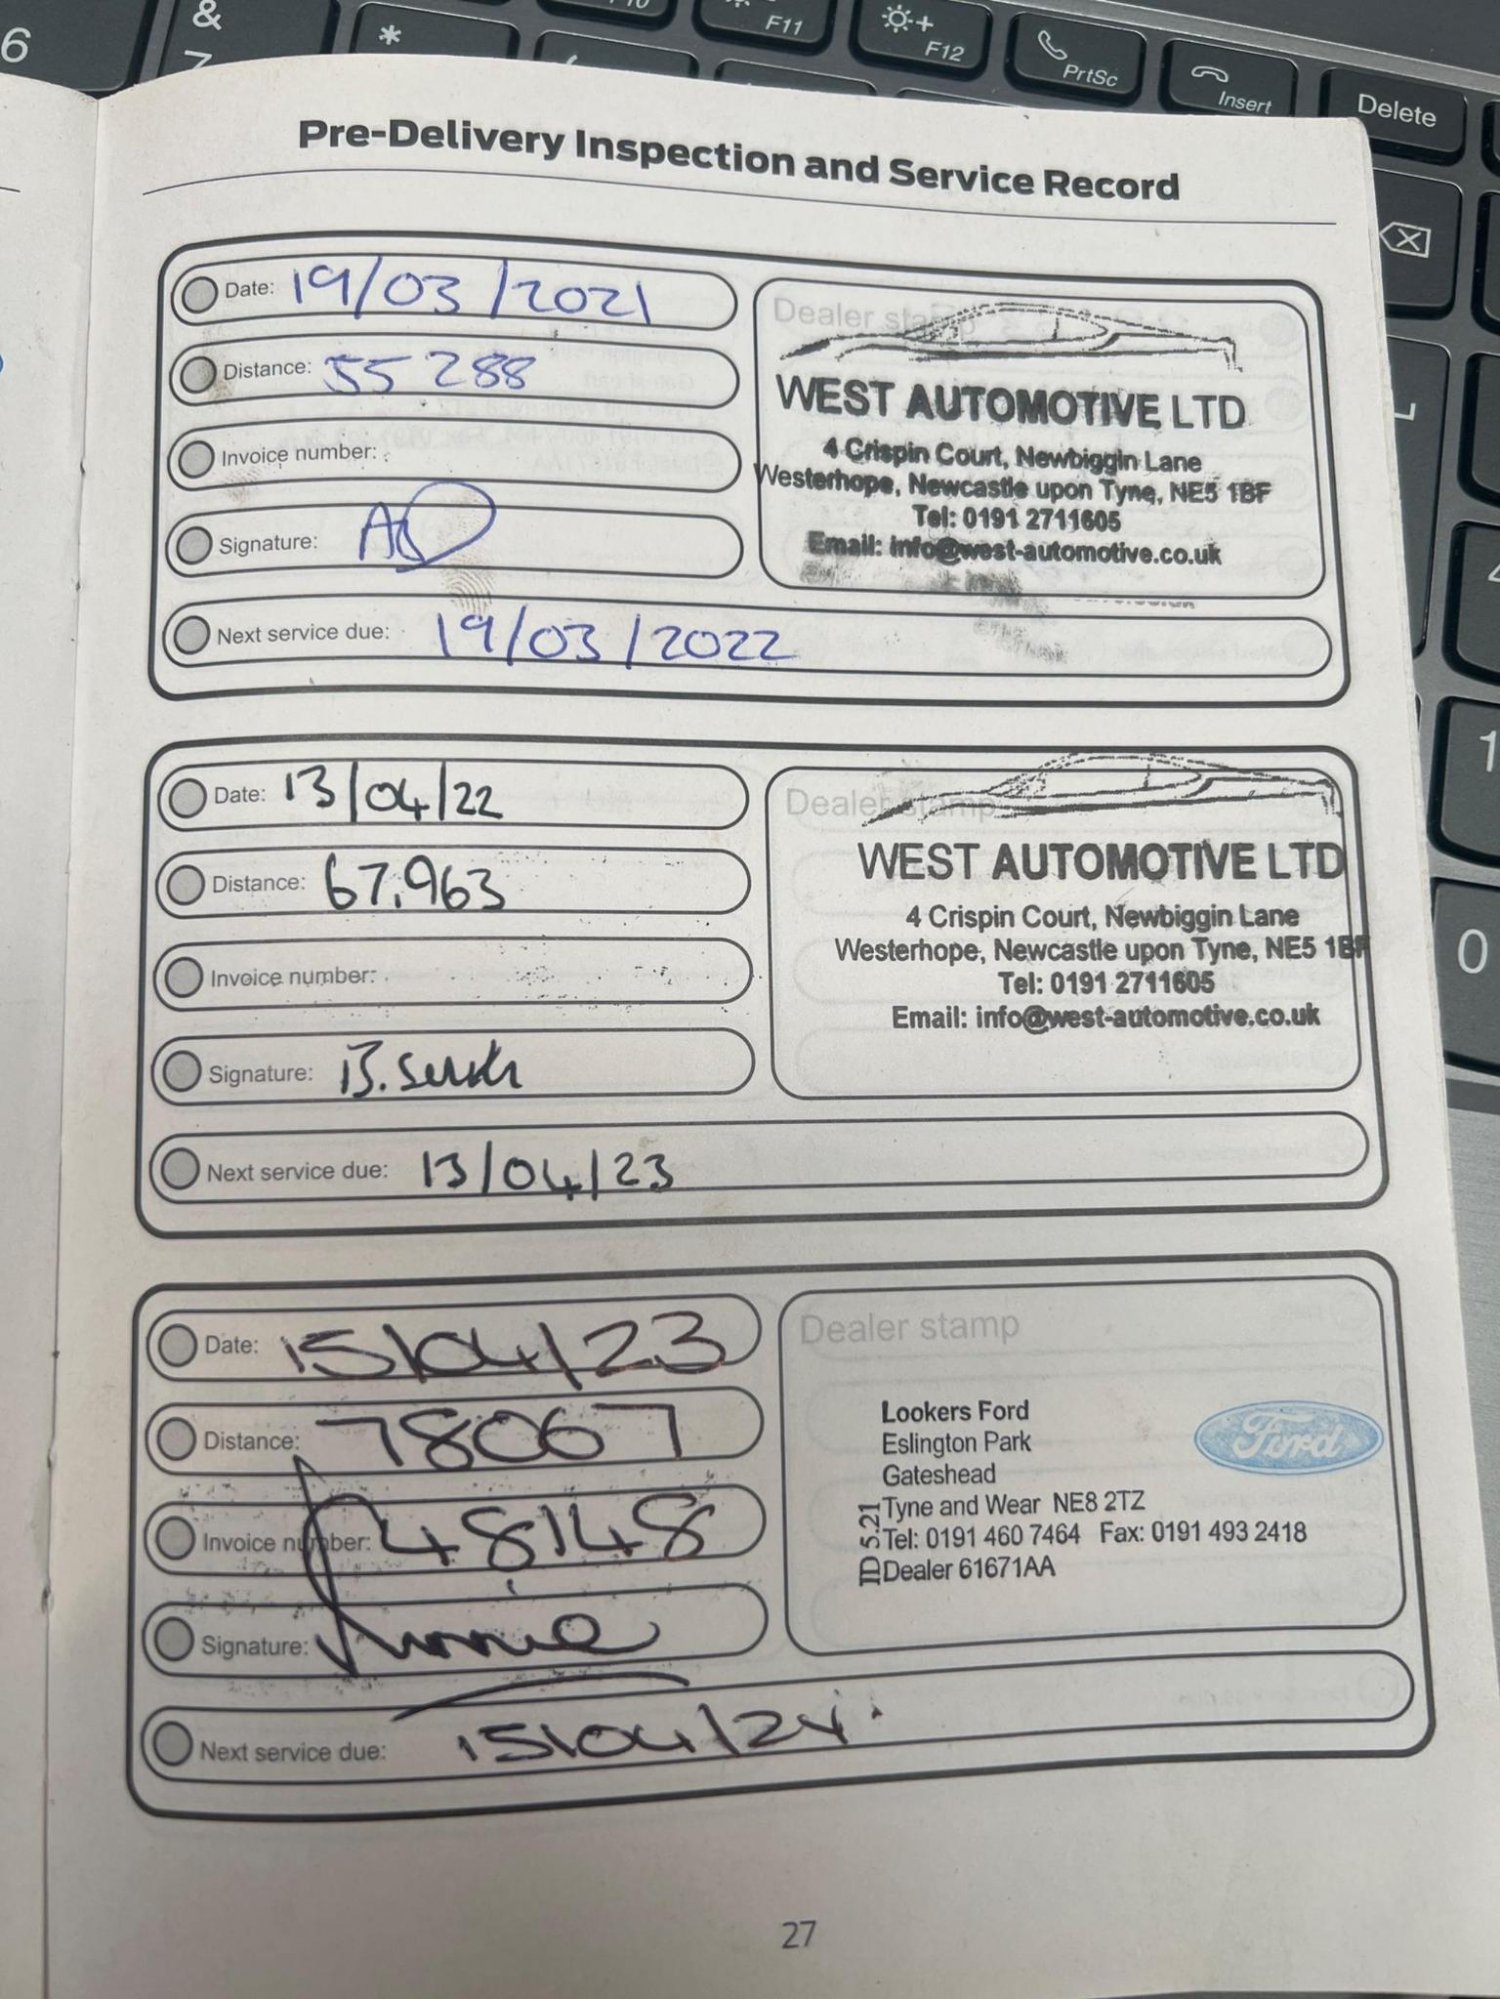 6
&
7
*
F10
F11
F12
PrtSc
Insert
Delete
Pre-Delivery Inspection and Service Record
Date: 19/03/2021
Distance: 55288
Invoice number:
Signature:
Next service due: 19/03/2022
Dealer stamp
WEST AUTOMOTIVE LTD
4 Crispin Court, Newbiggin Lane
Westerhope, Newcastle upon Tyne, NE5 1BF
Tel: 0191 2711605
Email: info@west-automotive.co.uk
Date: 13/04/22
Distance: 67,963
Invoice number:
Signature:
Next service due: 13/04/23
Dealer stamp
WEST AUTOMOTIVE LTD
4 Crispin Court, Newbiggin Lane
Westerhope, Newcastle upon Tyne, NE5 1BF
Tel: 0191 2711605
Email: info@west-automotive.co.uk
1
0
Date: 15/04/23
Distance: 78067
Invoice number: 48148
Signature:
Next service due: 15/04/24
Dealer stamp
Lookers Ford
Eslington Park
Gateshead
Tyne and Wear NE8 2TZ
Tel: 0191 460 7464 Fax: 0191 493 2418
Dealer 61671AA
ID 5.21
Ford
27